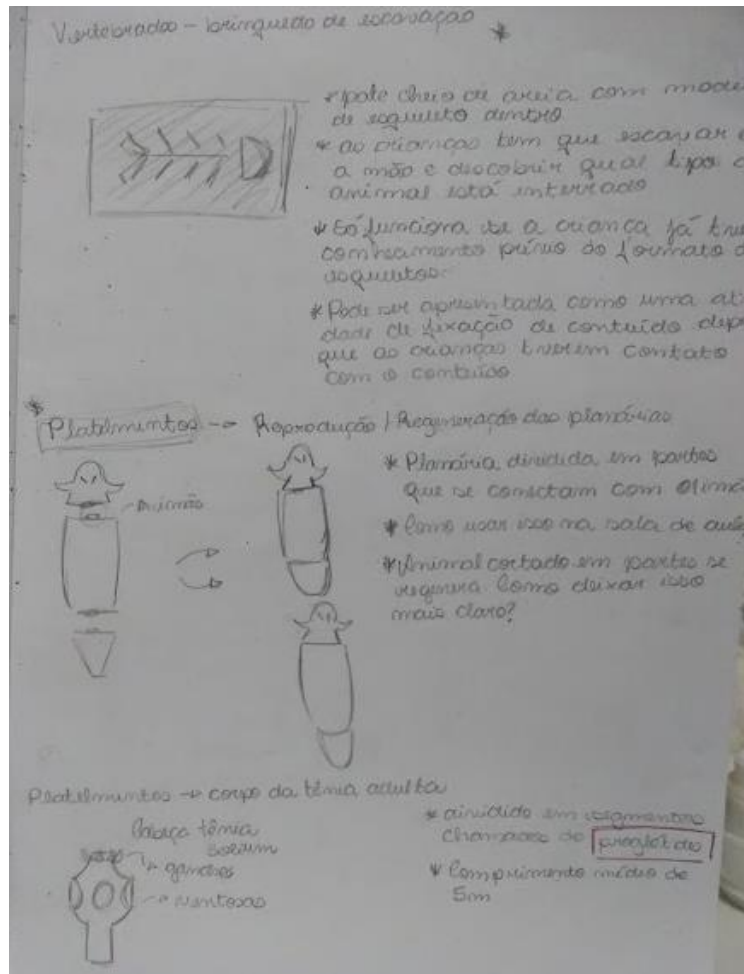 Vertebrados - brinquedo de escavação *
* pote cheio de areia com mode
de esqueleto dentro
* as crianças tem que escavar c
a mão e descobrir qual tipo d
animal está enterrado
* Só funciona se a criança já
conhecimento prévio do formato d
esqueletos.
* Pode ser apresentada como uma ati
dade de fixação de conteúdo dep
que as crianças tiverem contato
com o conteúdo
*
Platelmintos -> Reprodução / Regeneração das planárias
* Planária dividida em partes
que se conectam com
* Como usar isso na sala de aula
* Animal cortado em partes se
regenera. Como deixar isso
mais claro?
Platelmintos -> corpo da tênia adulta
Cabeça tênia
solium
ganchos
ventosas
* dividido em segmentos
chamados de proglótides
* Comprimento médio de
5m